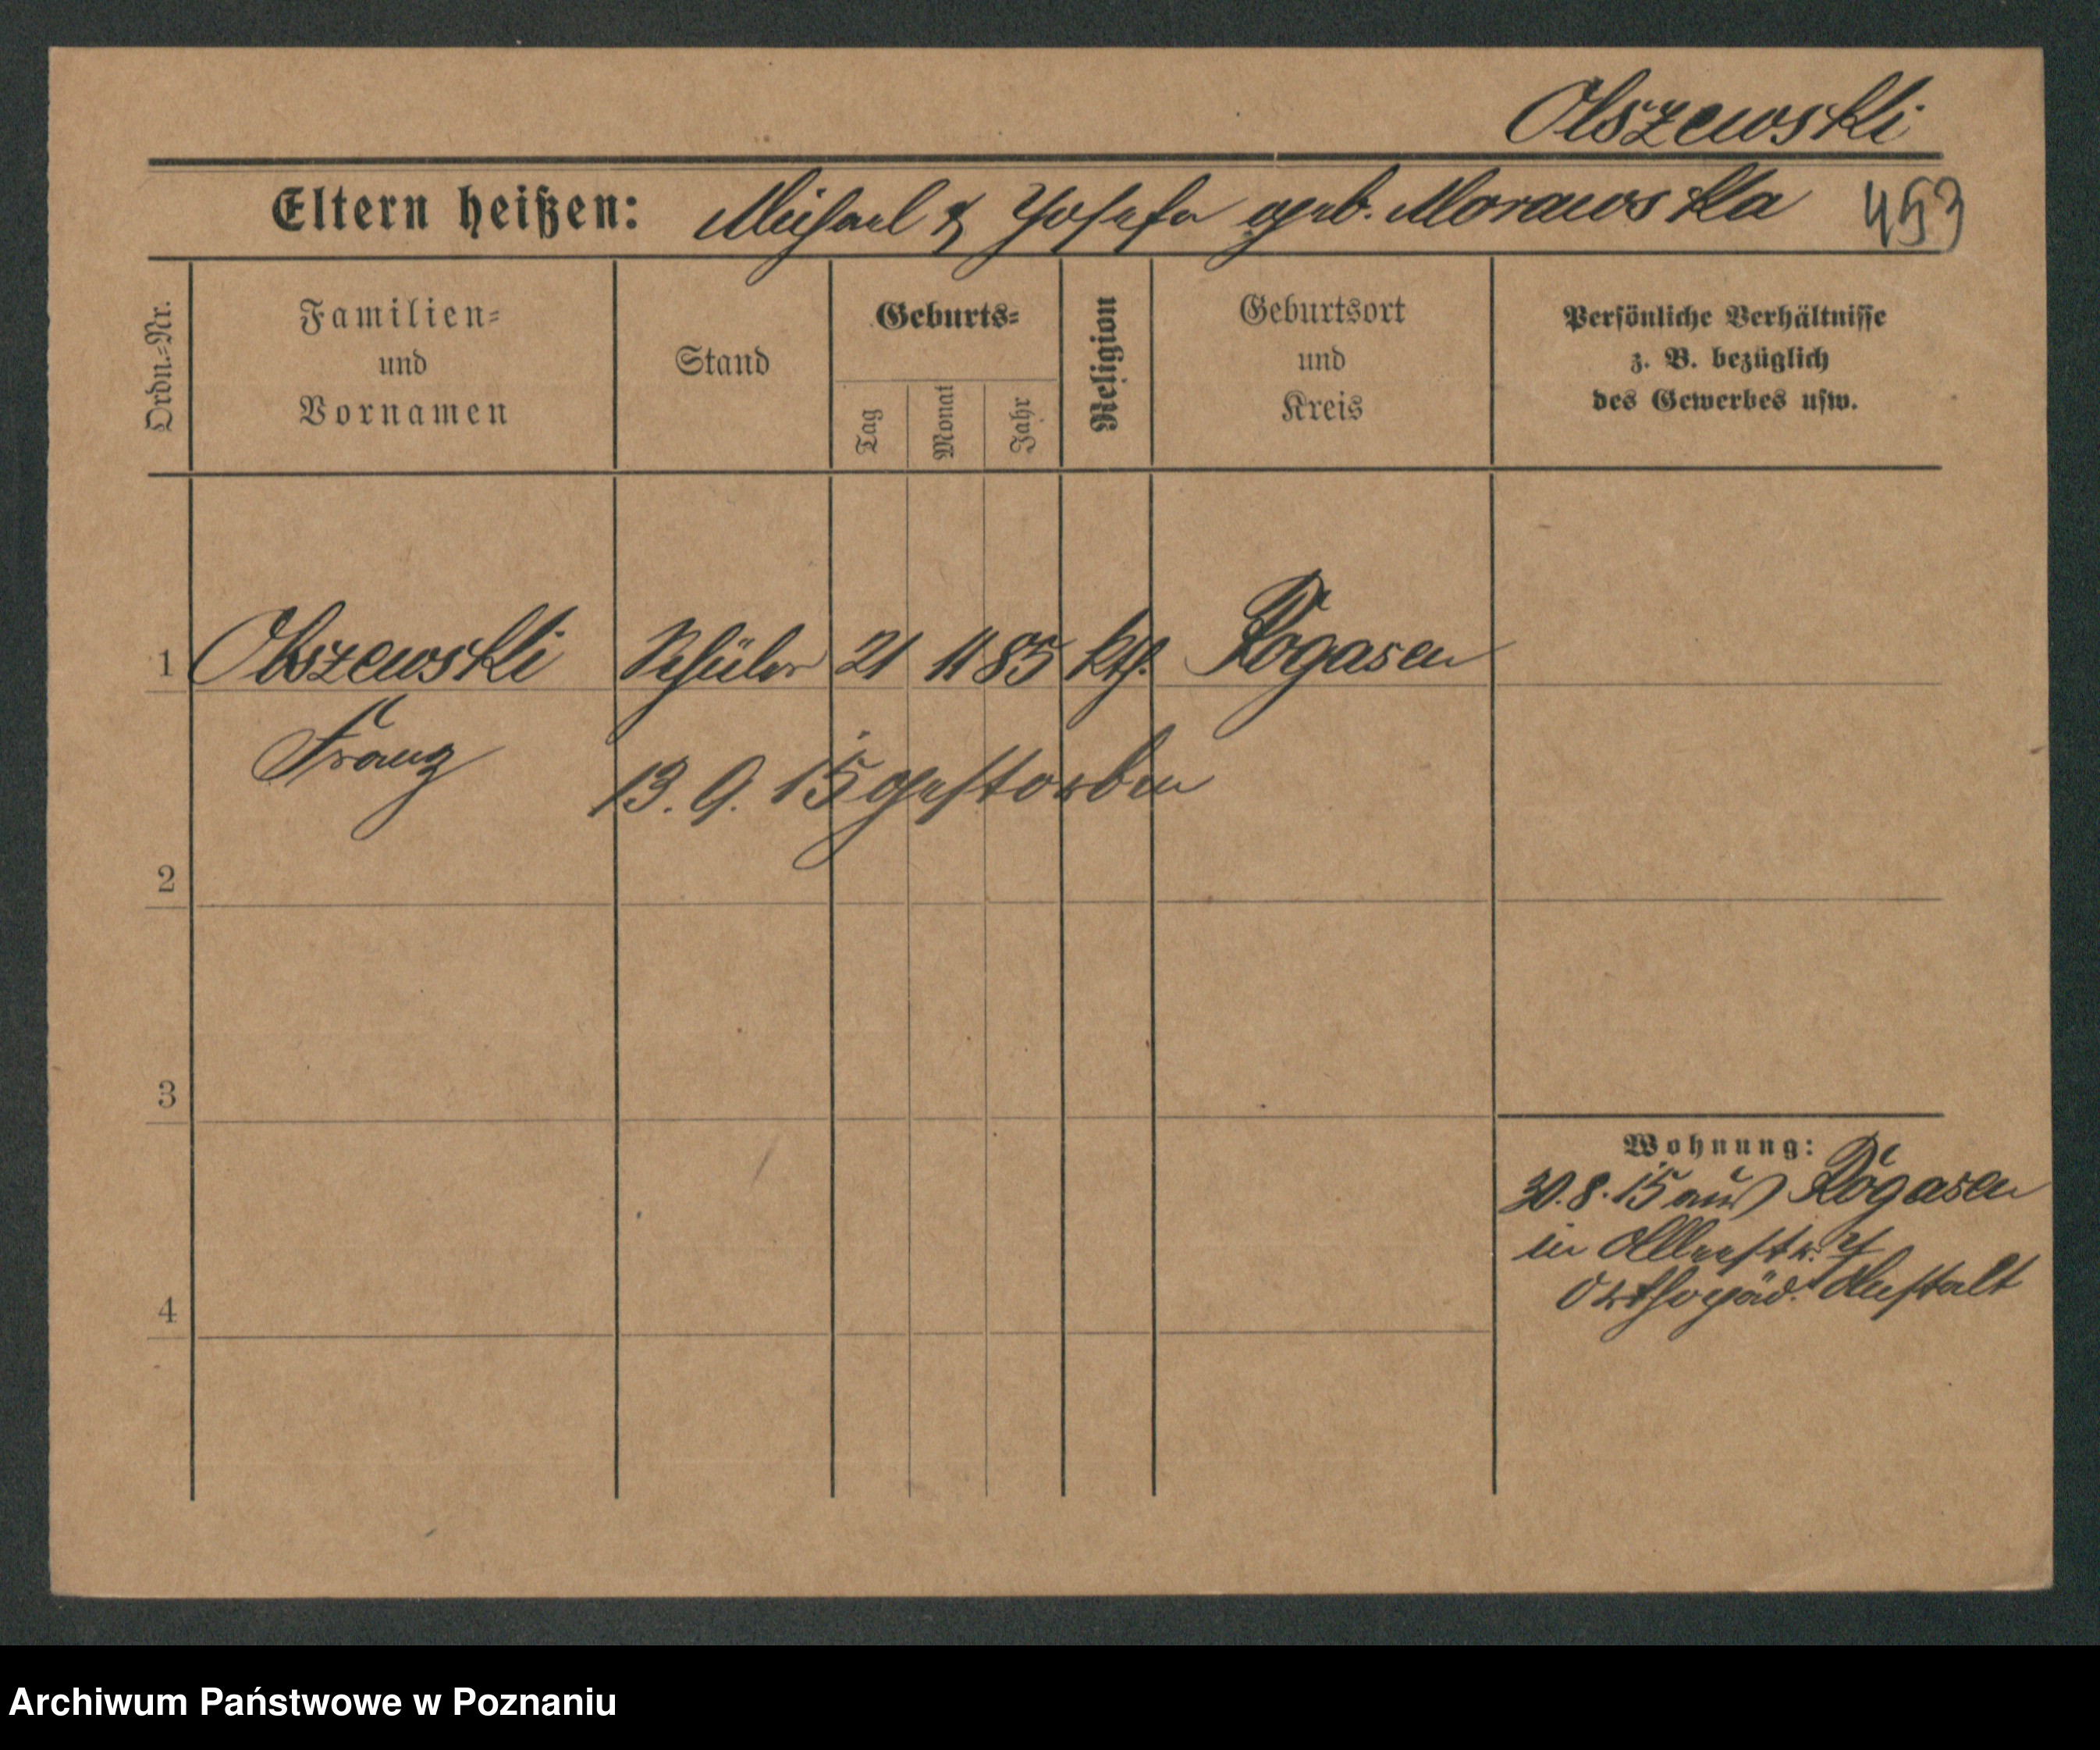 Olszewski
Eltern heißen: Michael & Josefa geb. Morawska 453
Ordn.=Nr.
Familien=
und
Vornamen
Stand
Geburts=
Tag
Monat
Jahr
Religion
Geburtsort
und
Kreis
Persönliche Verhältnisse
z. B. bezüglich
des Gewerbes usw.
1 Olszewski Schüler 21 11 85 kth. Rogasen
Franz
13. 9. 15 gestorben
2
3
4
Wohnung:
30. 8. 15 aus Rogasen
in
Orthopäd. Anstalt
Archiwum Państwowe w Poznaniu